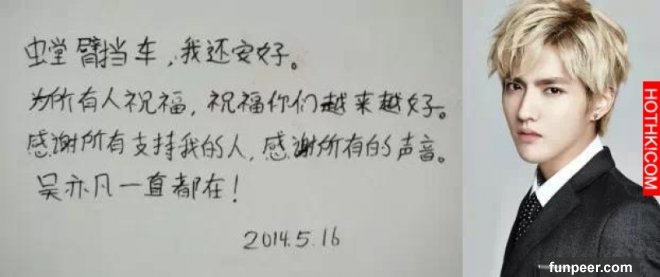 螳臂挡车，我还安好。
为所有人祝福，祝福你们越来越好。
感谢所有支持我的人，感谢所有的声音。
吴亦凡一直都在！
2014.5.16
HOTHK!COM
funpeer.com